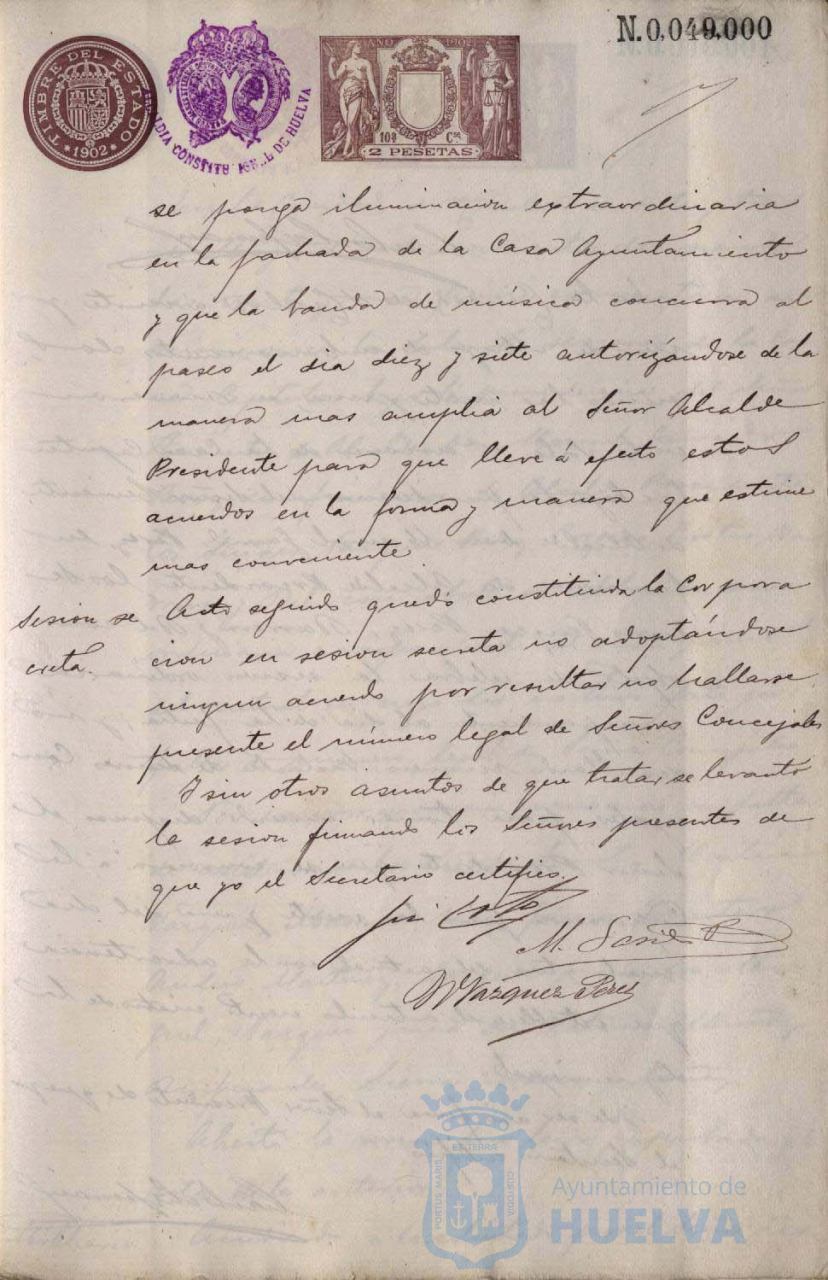 N.0,049,000
TIMBRE DEL ESTADO
*1902*
ALCALDIA CONSTITUCIONAL DE HUELVA
AÑO 1902
10ª Cse
2 PESETAS
se ponga iluminacion extraordinaria
en la fachada de la Casa Ayuntamiento
y que la banda de música concurra al
paseo el dia diez y siete autorizándose de la
manera mas amplia al Señor Alcalde
Presidente para que lleve á efecto estos
acuerdos en la forma y manera que estime
mas conveniente.
Sesion se
creta.
Acto seguido quedó constituida la Corpora
cion en sesion secreta no adoptándose
ningun acuerdo por resultar no hallarse
presente el número legal de Señores Concejales
Y sin otros asuntos de que tratar se levantó
la sesion firmando los Señores presentes de
que yo el Secretario certifico.
M.
M Vázquez Pérez
EST TERRA
PORTUS MARIS
CUSTODIA
Ayuntamiento de
HUELVA